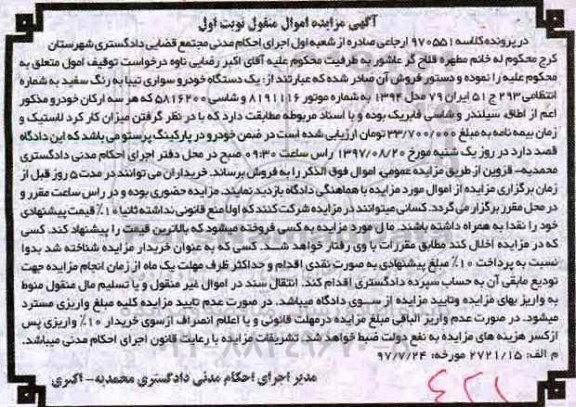 آگهی مزایده اموال منقول نوبت اول
در پرونده کلاسه ۹۷۰۵۵۱ ارجاعی صادره از شعبه اول اجرای احکام مدنی مجتمع قضایی دادگستری شهرستان
کرج محکوم له خانم مطهره فلاح گر عاشور به طرفیت محکوم علیه آقای اکبر رضایی ناوه درخواست توقیف اموال متعلق به
محکوم علیه را نموده و دستور فروش آن صادر شده که عبارتند از: یک دستگاه خودرو سواری تیبا به رنگ سفید به شماره
انتظامی ۲۹۳ ج ۵۱ ایران ۷۹ مدل ۱۳۹۴ به شماره موتور ۸۱۹۱۱۱۶ و شاسی ۵۸۱۶۲۰۰ که هر سه ارکان خودرو مذکور
اعم از اطاق، سیلندر و شاسی فابریک بوده و با اسناد مربوطه مطابقت دارد که با در نظر گرفتن میزان کار کرد لاستیک و
زمان بیمه نامه به مبلغ ۳۳/۷۰۰/۰۰۰ تومان ارزیابی شده است در ضمن خودرو در پارکینگ پرستو می باشد که این دادگاه
قصد دارد در روز یک شنبه مورخ ۱۳۹۷/۰۸/۲۰ راس ساعت ۰۹:۳۰ صبح در محل دفتر اجرای احکام مدنی دادگستری
محمدیه- قزوین از طریق مزایده عمومی، اموال فوق الذکر را به فروش برساند. خریداران می توانند در مدت ۵ روز قبل از
زمان برگزاری مزایده از اموال مورد مزایده با هماهنگی دادگاه بازدید نمایند. مزایده حضوری بوده و در راس ساعت مقرر و
در محل مقرر برگزار می گردد. کسانی میتوانند در مزایده شرکت کنند که اولا منع قانونی نداشته ثانیا ۱۰٪ قیمت پیشنهادی
خود را نقدا به همراه داشته باشند. مال مورد مزایده به کسی فروخته میشود که بالاترین قیمت را پیشنهاد کند. کسی
که در مزایده اخلال کند مطابق مقررات با وی رفتار خواهد شد. کسی که به عنوان خریدار مزایده شناخته شد بدوا
نسبت به پرداخت ۱۰٪ مبلغ پیشنهادی به صورت نقدی اقدام و حداکثر ظرف مهلت یک ماه از زمان انجام مزایده جهت
تودیع مابقی آن به حساب سپرده دادگستری اقدام کند. انتقال سند در اموال غیر منقول و یا تسلیم مال منقول منوط
به واریز بهای مزایده وتایید مزایده از سوی دادگاه میباشد. در صورت عدم تایید مزایده کلیه مبلغ واریزی مسترد
میشود. در صورت عدم واریز الباقی مبلغ مزایده درمهلت قانونی و یا اعلام انصراف ازسوی خریدار ۱۰٪ واریزی پس
ازکسر هزینه های مزایده به نفع دولت ضبط خواهد شد. تشریفات مزایده با رعایت قانون اجرای احکام مدنی میباشد.
م الف: ۲۷۲۱/۱۵ مورخه: ۹۷/۷/۲۴
مدیر اجرای احکام مدنی دادگستری محمدیه- اکبری